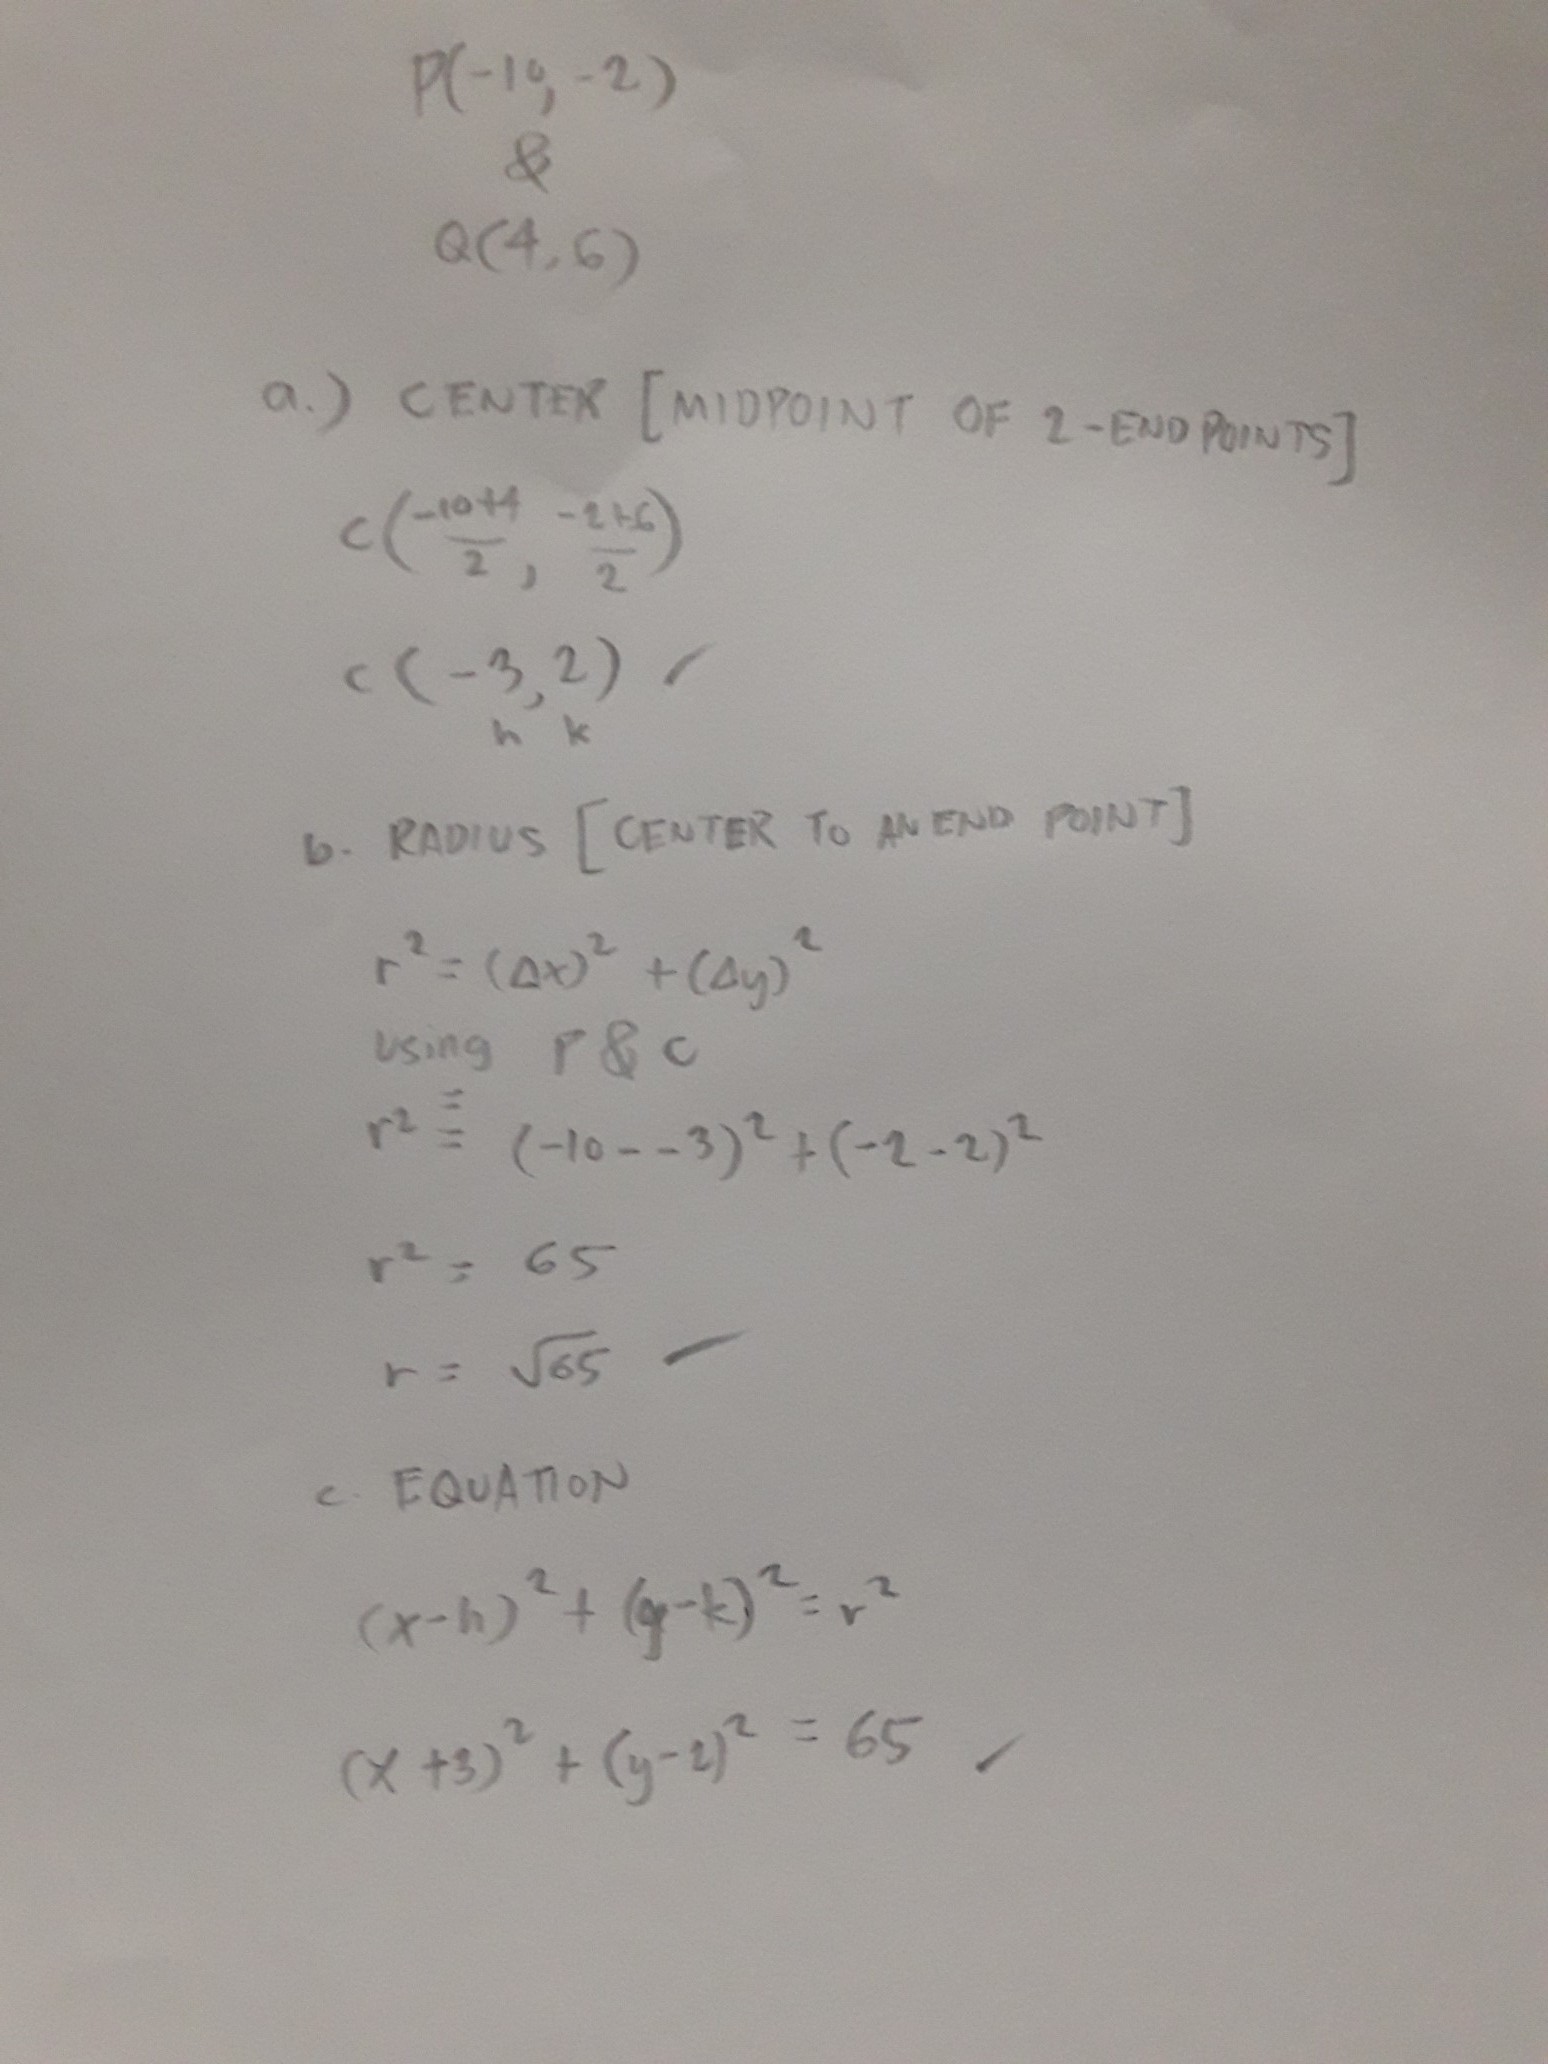 P(-10, -2)
&
Q(4,6)
a.) CENTER [MIDPOINT OF 2-END POINTS]
C(-10+4/2, -2+6/2)
C(-3,2) ✓
h k
b. RADIUS [CENTER TO AN END POINT]
r² = (Δx)² + (Δy)²
Using P & C
r² = (-10--3)² + (-2-2)²
r² = 65
r = √65 ✓
c. EQUATION
(x-h)² + (y-k)² = r²
(x+3)² + (y-2)² = 65 ✓